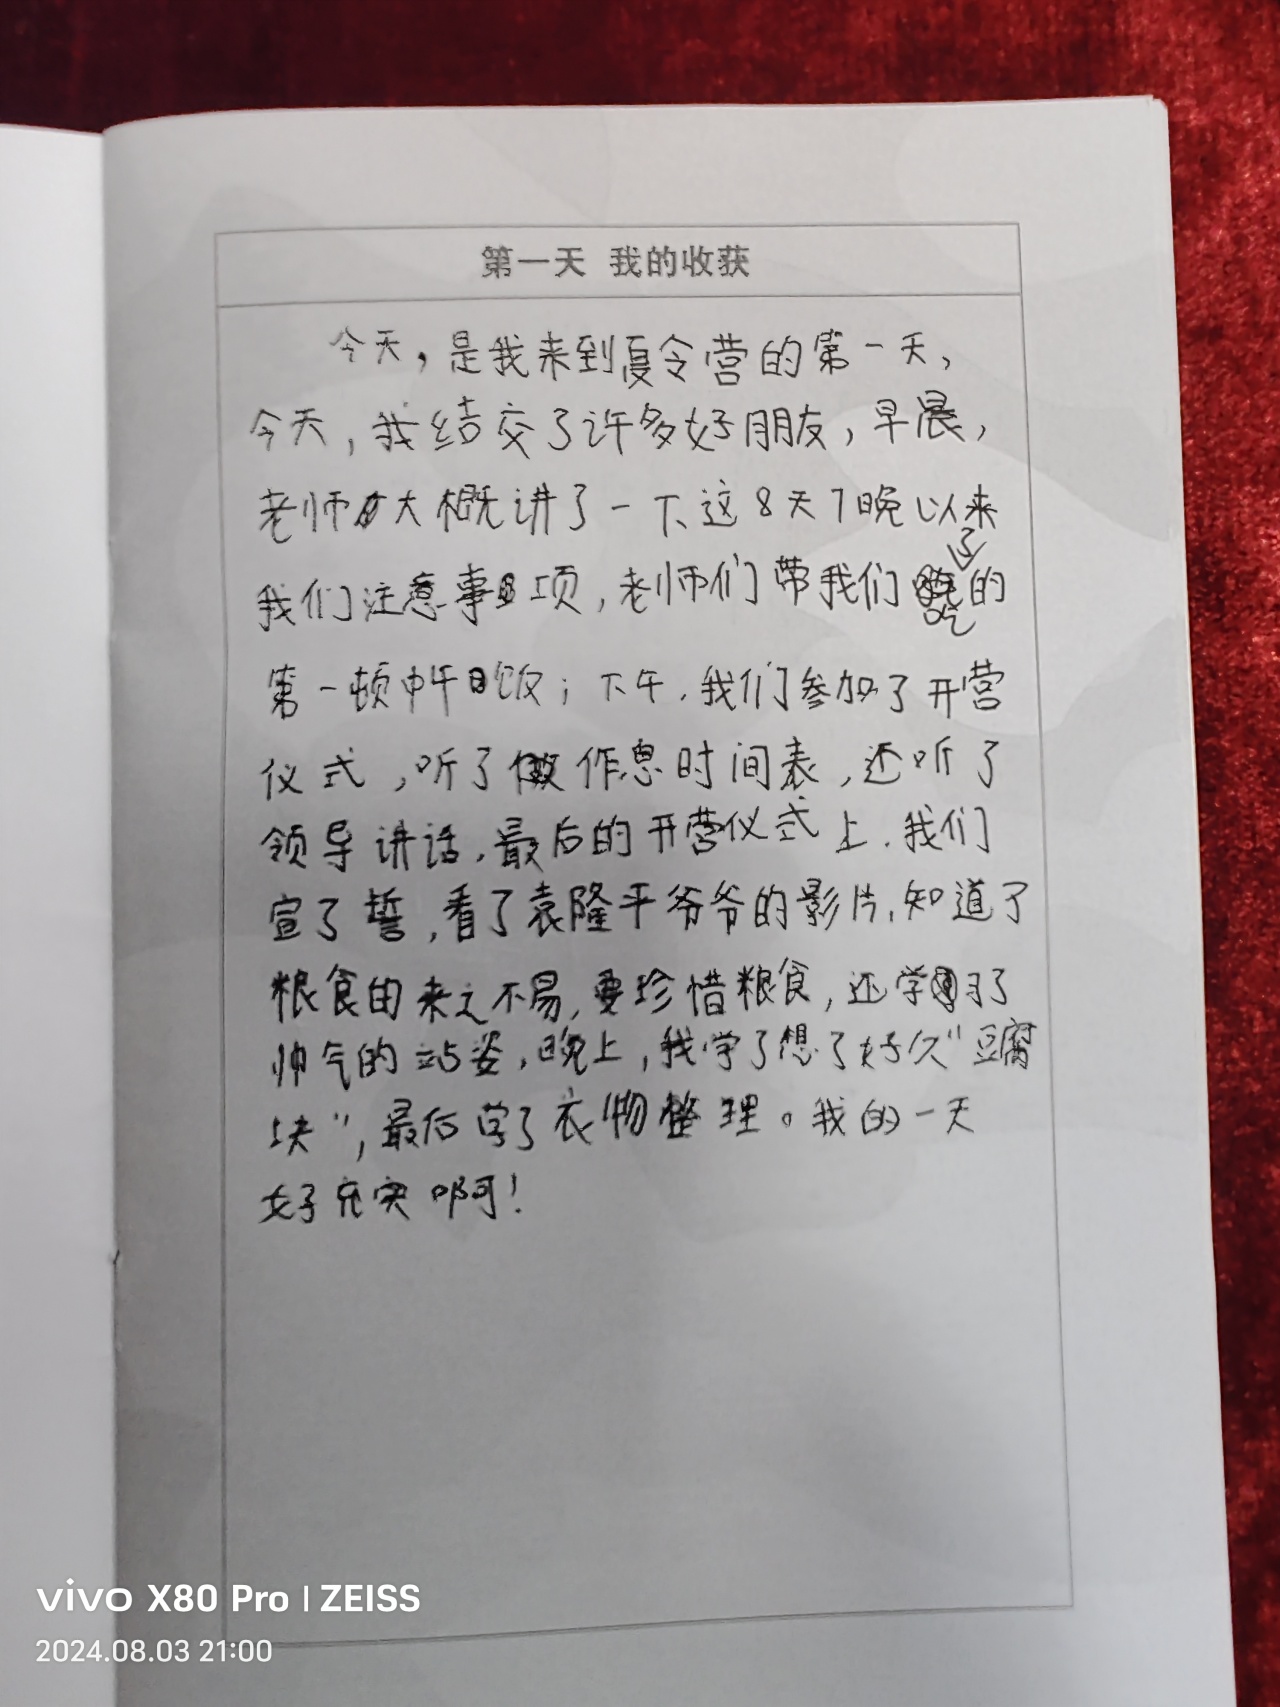 第一天 我的收获
今天，是我来到夏令营的第一天，
今天，我结交了许多好朋友，早晨，
老师大概讲了一下这8天7晚以来
我们注意事项，老师们带我们吃了的
第一顿中午饭；下午，我们参加了开营
仪式，听了作息时间表，还听了
领导讲话，最后的开营仪式上，我们
宣了誓，看了袁隆平爷爷的影片，知道了
粮食的来之不易，要珍惜粮食，还学习了
帅气的站姿，晚上，我学了想了好久“豆腐
块”，最后学了衣物整理。我的一天
好充实啊！
vivo X80 Pro | ZEISS
2024.08.03 21:00